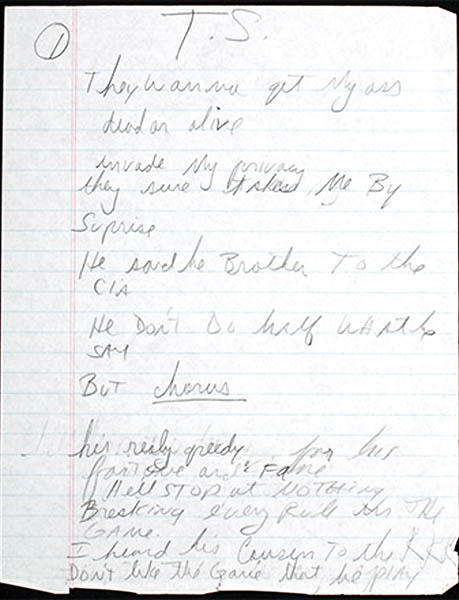 ①
T.S.
They Wanna get My ass
dead or alive
invade My privacy
they sure Me By
Suprise
He said he Brother To the
CIA
He Don't Do half What he
SAY
BuT chorus
his realy greedy for her
fortune and Fame
Hell STOP at NOTHING
Breaking every Rule in The
GAME.
I heard his Cousen To the KKK
Don't like the Game that, he play